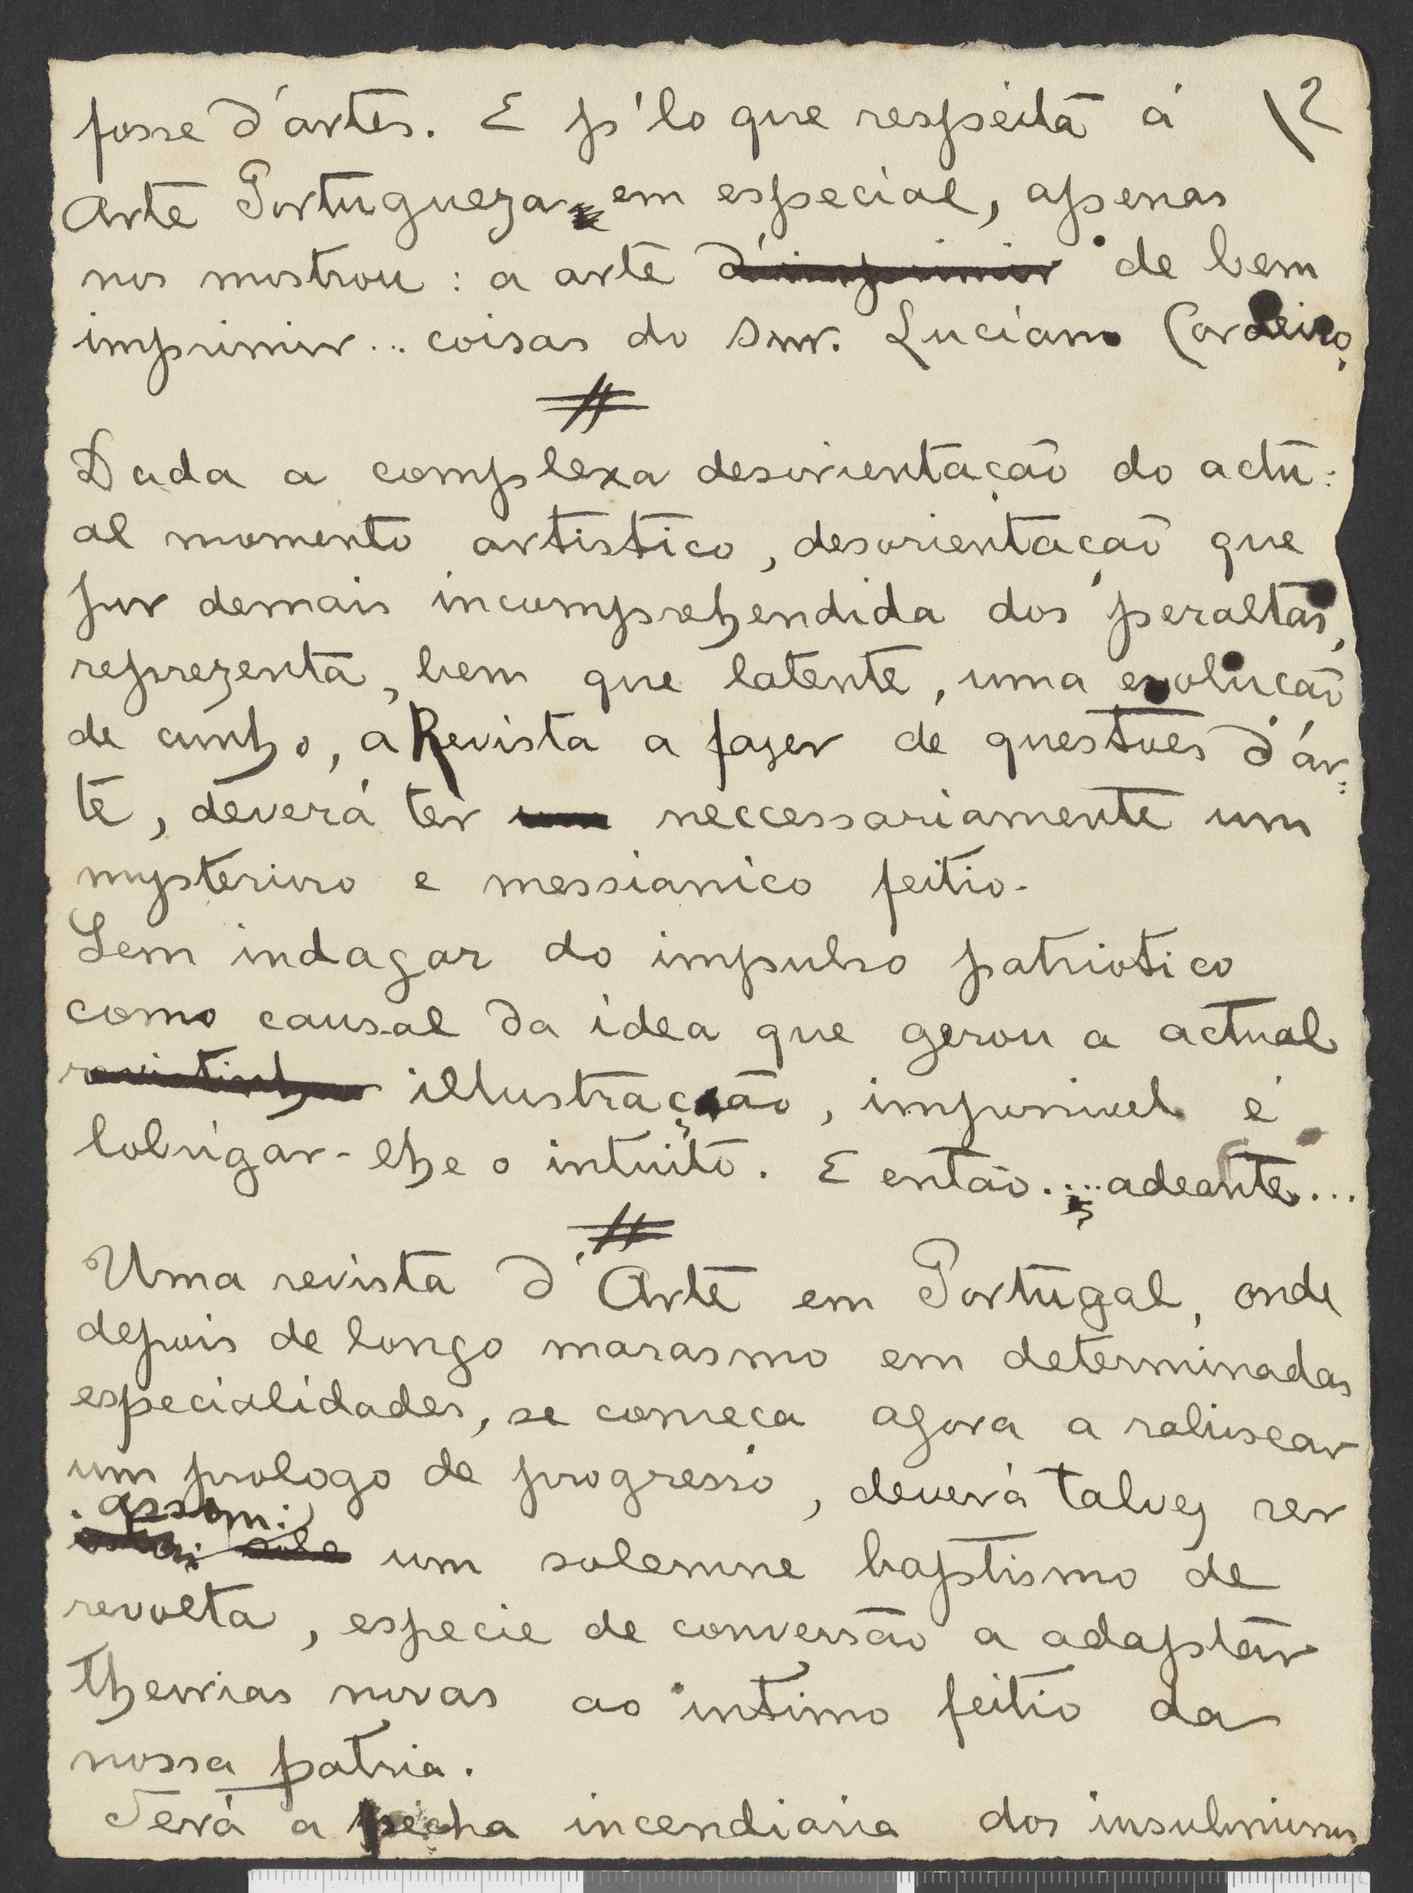 fosse d'artes. E p'lo que respeita á \2
Arte Portugueza em especial, apenas
nos mostrou: a arte d'imprimir de bem
imprimir... coisas do Snr. Luciano Cordeiro.
Dada a complexa desorientação do actu:
al momento artistico, desorientação que
por demais incomprehendida dos peraltas,
reprezenta, bem que latente, uma evolução
de cunho, a Revista a fazer de questões d'ar:
te, deverá ter um neccessariamente um
mysterioso e messianico feitio.
Sem indagar do impulso patriotico
como causal da idea que gerou a actual
revistinha illustração, impossivel é
lobrigar-lhe o intuito. E então.... adeante...
Uma revista d'Arte em Portugal, onde
depois de longo marasmo em determinadas
especialidades, se começa agora a rabiscar
um prologo de progresso, deverá talvez ser
assim:
um solemne baptismo de
revolta, especie de conversão a adaptar
theorias novas ao intimo feitio da
nossa patria.
Terá a pecha incendiaria dos insubmissos